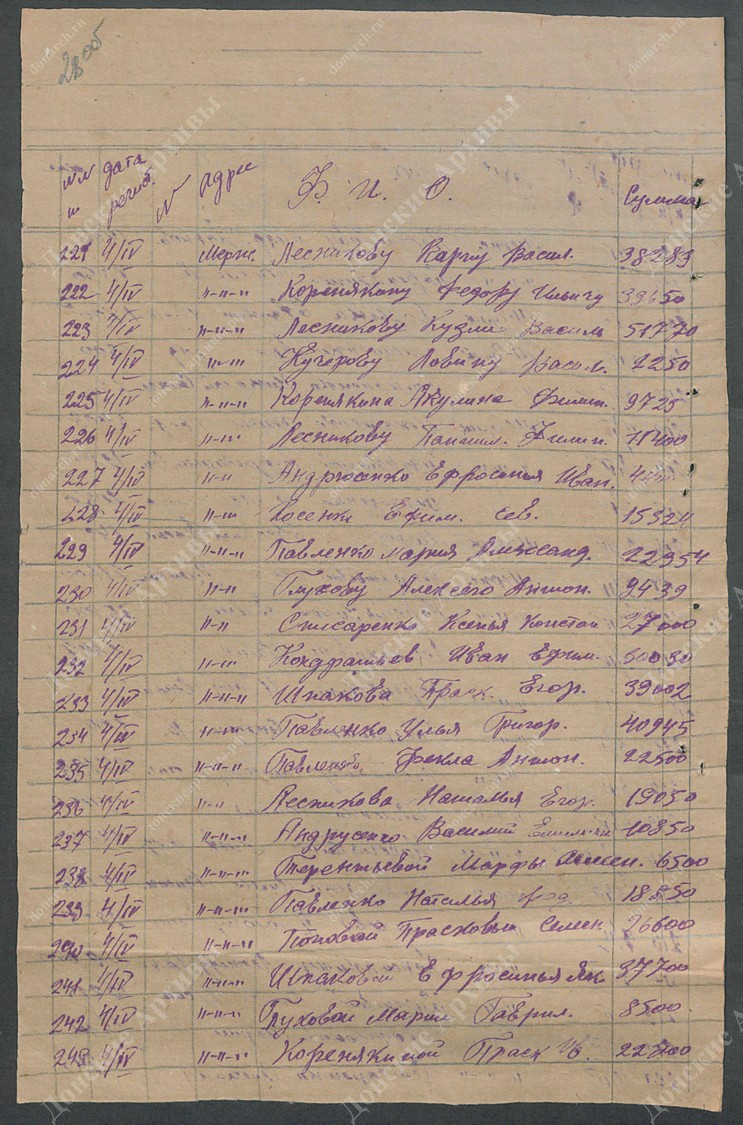 28 об
№№ п дата регист. № Адрес Ф. И. О. Сумма
221 4/IV Мержс. Лесникову Карпу Васил. 38283
222 4/IV "-"-" Коренякину Федору Ильичу 39650
223 4/IV "-"-" Лесникову Кузми Василь 51770
224 4/IV "-"" Кучерову Васил. 2250
225 4/IV "-"-" Коренякина Акулина Филип. 9725
226 4/IV "-"" Лесникову Филип. 71400
227 4/IV "-" Андрюсенко Ефросинья Иван.
228 4/IV "-"" Косенко Ефим. Сев. 15324
229 4/IV "-"-" Павленко Мария Александ. 22954
230 4/IV "-" Глухову Алексею Антон. 9439
231 4/IV "-" Слюсаренко Ксенья Констан 27000
232 4/IV "-"" Кондратьев Иван Ефим. 50030
233 4/IV "-"-" Шпакова Праск. Егор. 39002
234 4/IV "-"-" Павленко Улья Григор. 40945
235 4/IV "-"-" Фекла Антон. 22500
236 4/IV "-" Лесникова Наталья Егор. 19050
237 4/IV "-"-" Андрусенко Василий 10850
238 4/IV "-"-" Терентьевой Марфы 6500
239 4/IV "-"-" Павленко Наталья 18850
240 4/IV "-"-" Поповой Прасковьи Семен 26600
241 4/IV "-"-" Шпаковой Ефросинья Як 37700
242 4/IV "-"-" Глуховой Марии Гаврил. 8500
243 4/IV "-"-" Коренякиной Праск Ив. 22700
Донские Архивы
donarch.ru